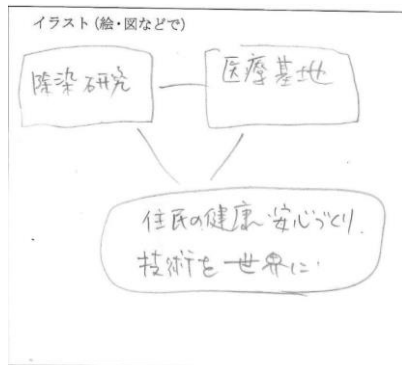 イラスト(絵・図などで)
除染研究
医療基地
住民の健康・安心づくり.
技術を世界に.